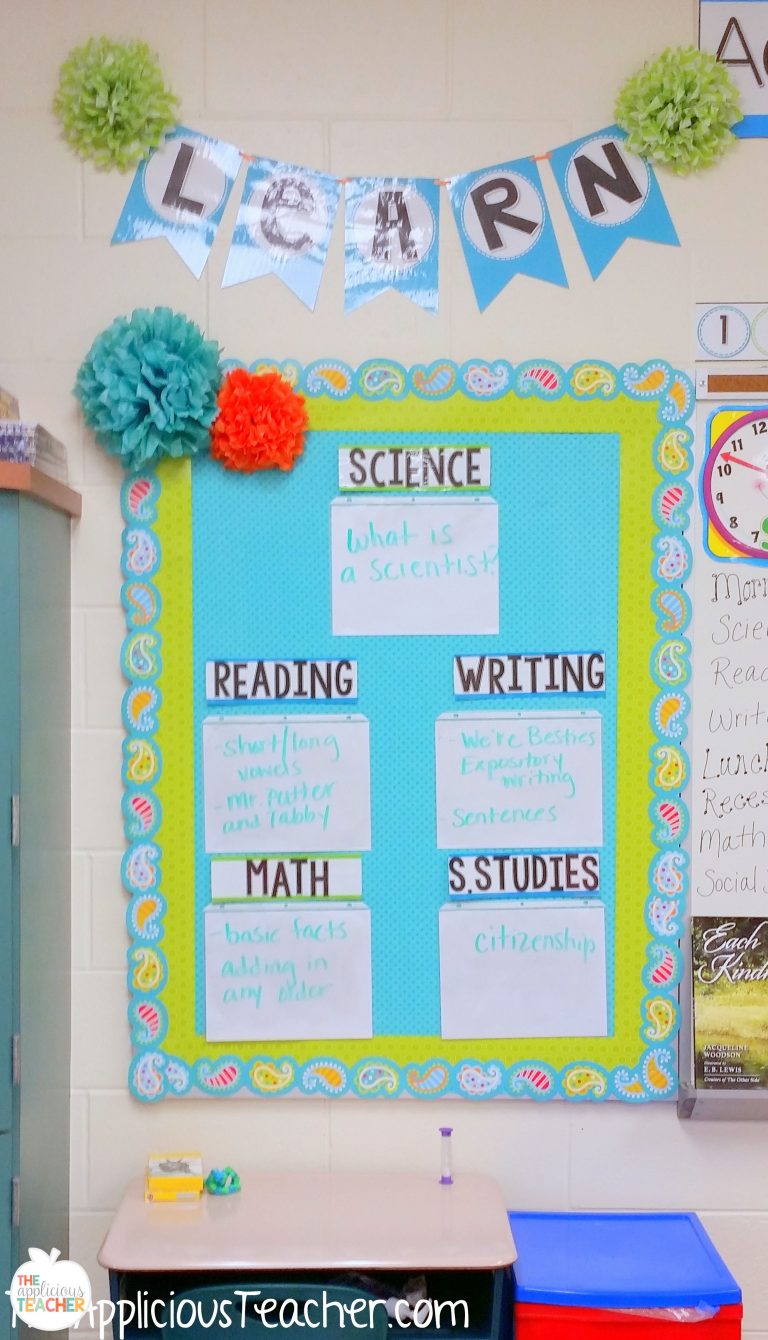 LeARN
SCIENCE
What is
a scientist?
READING
WRITING
-short/long
vowels
-Mr. Putter
and Tabby
-We're Besties
Expository
writing
-Sentences
MATH
S.STUDIES
-basic facts
adding in
any order
citizenship
1
11 12
10
9
8
7
Lunch
Math
Social
Each
JACQUELINE
WOODSON
Illustrated by
E. B. LEWIS
Creators of The Other Side
THE
applicious
TEACHER
AppliciousTeacher.com